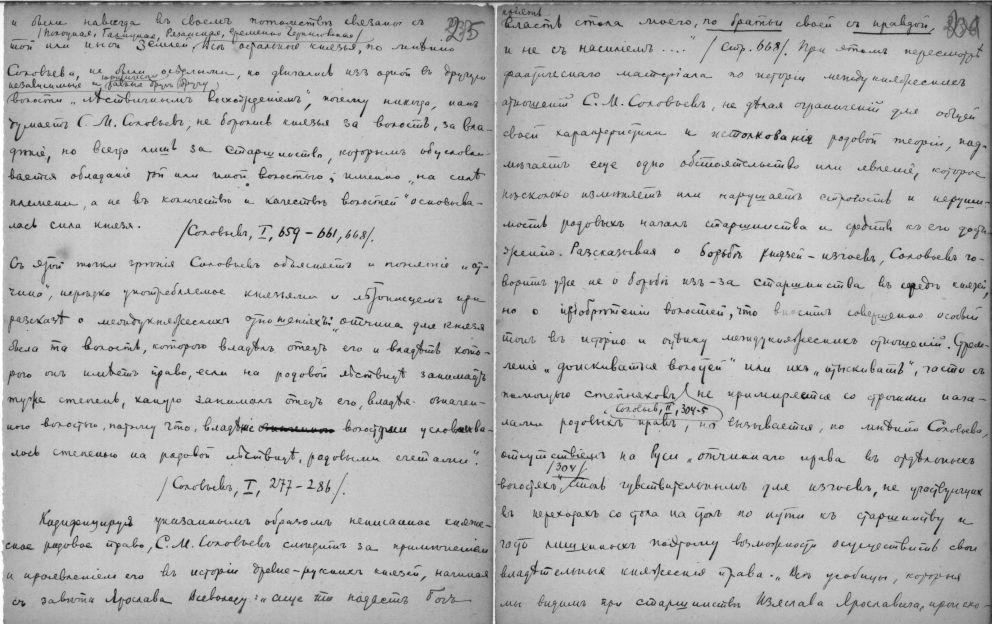 235
и были навсегда въ своемъ потомствѣ связаны съ
/Полоцкая, Галицкая, Рязанская, временно Черниговская/
той или иной землей. Всѣ остальные князья, по мнѣнію
Соловьева, не были осѣдлыми, но двигались изъ одной въ другую
независимыя и юридически равныя другъ другу
волости „лѣствичнымъ восхожденіемъ", почему никогда, какъ
думаетъ С. М. Соловьевъ, не боролись князья за волость, за вла-
дѣніе, но всего лишь за старшинство, которымъ обусловли-
вается обладаніе той или иной волостью; именно „на силѣ
племени, а не въ количествѣ и качествѣ волостей" основыва-
лась сила князя. /Соловьевъ, I, 659–661, 668/.
Съ этой точки зрѣнія Соловьевъ объясняетъ и понятіе „от-
чина", нерѣдко употребляемое князьями и лѣтописцемъ при
разсказѣ о междукняжескихъ отношеніяхъ: „отчина для князя
была та волость, которою владѣлъ отецъ его и владѣть кото-
рою онъ имѣетъ право, если на родовой лѣствицѣ занимаетъ
ту же степень, какую занималъ отецъ его, владѣя означен-
ною волостью, потому что, владѣніе волостями условлива-
лось степенью на родовой лѣствицѣ, родовыми счетами".
/Соловьевъ, I, 277–286/.
Кодифицируя указаннымъ образомъ неписанное княже-
ское родовое право, С. М. Соловьевъ слѣдитъ за примѣненіемъ
и проявленіемъ его въ исторіи древне-русскихъ князей, начиная
съ завѣта Ярослава Всеволоду: „аще ти подастъ Богъ
236
власть стола моего, по братьи своей съ правдой,
и не съ насильемъ...." /стр. 668/. При этомъ пересмотрѣ
фактическаго матеріала по исторіи междукняжескихъ
отношеній С. М. Соловьевъ, не дѣлая ограниченій для общей
своей характеристики и истолкованія родовой теоріи, под-
мѣчаетъ еще одно обстоятельство или явленіе, которое
нѣсколько измѣняетъ или нарушаетъ строгость и неруши-
мость родовыхъ началъ старшинства и средствъ къ его дости-
женію. Разсказывая о борьбѣ князей-изгоевъ, Соловьевъ го-
воритъ уже не о борьбѣ изъ-за старшинства въ средѣ князей,
но о пріобрѣтеніи волостей, что вноситъ совершенно особый
тонъ въ исторію и оцѣнку междукняжескихъ отношеній. Стрем-
леніе „доискиваться волостей" или ихъ „отыскивать", часто съ
помощью степняковъ /Соловьевъ, II, 304-5/ не примиряется со строгими нача-
лами родовыхъ правъ, но вызывается, по мнѣнію Соловьева,
отсутствіемъ на Руси „отчиннаго права въ отдѣльныхъ
волостяхъ" /304/, столь чувствительнымъ для изгоевъ, не участвующихъ
въ переходахъ со стола на столъ по пути къ старшинству и
часто лишенныхъ поэтому возможности осуществить свои
владѣтельныя княжескія права. „Всѣ усобицы, которыя
мы видимъ при старшинствѣ Изяслава Ярославича, происхо-